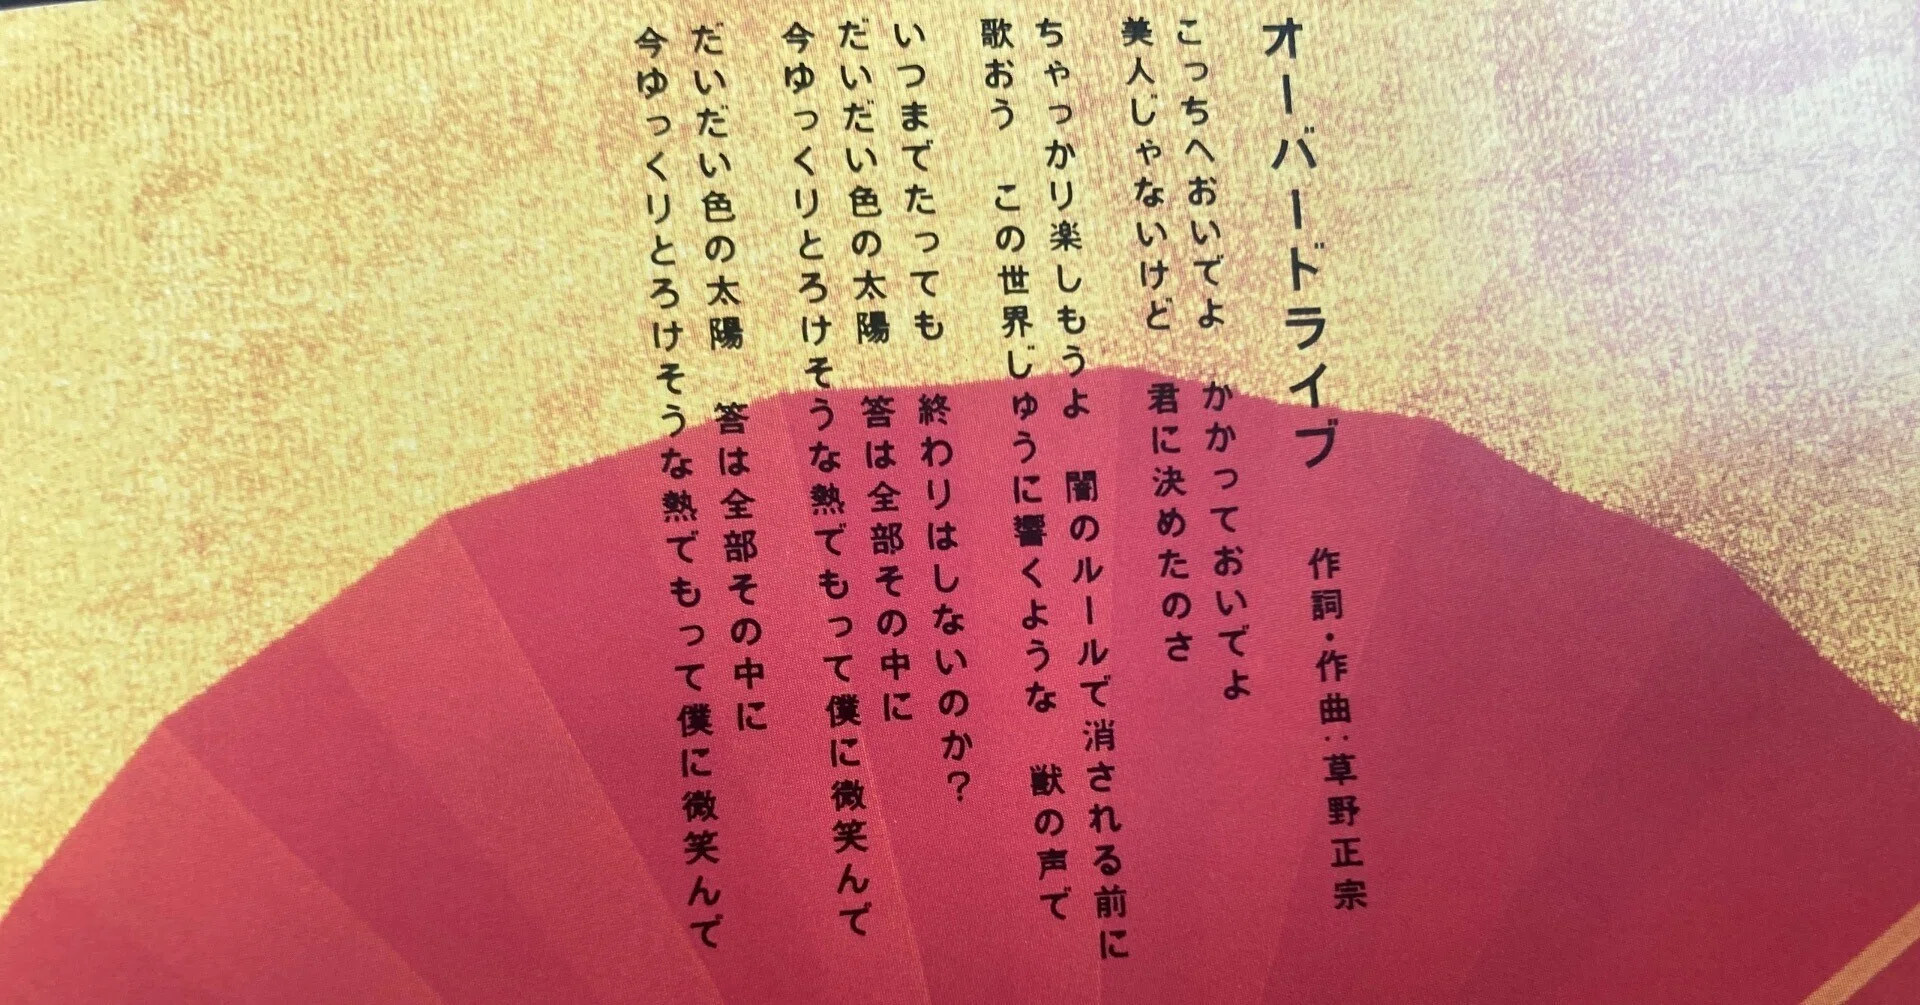 オーバードライブ　作詞・作曲:草野正宗
こっちへおいでよ　かかっておいでよ
美人じゃないけど　君に決めたのさ
ちゃっかり楽しもうよ　闇のルールで消される前に
歌おう　この世界じゅうに響くような　獣の声で
いつまでたっても　終わりはしないのか？
だいだい色の太陽　答は全部その中に
今ゆっくりとろけそうな熱でもって僕に微笑んで
だいだい色の太陽　答は全部その中に
今ゆっくりとろけそうな熱でもって僕に微笑んで